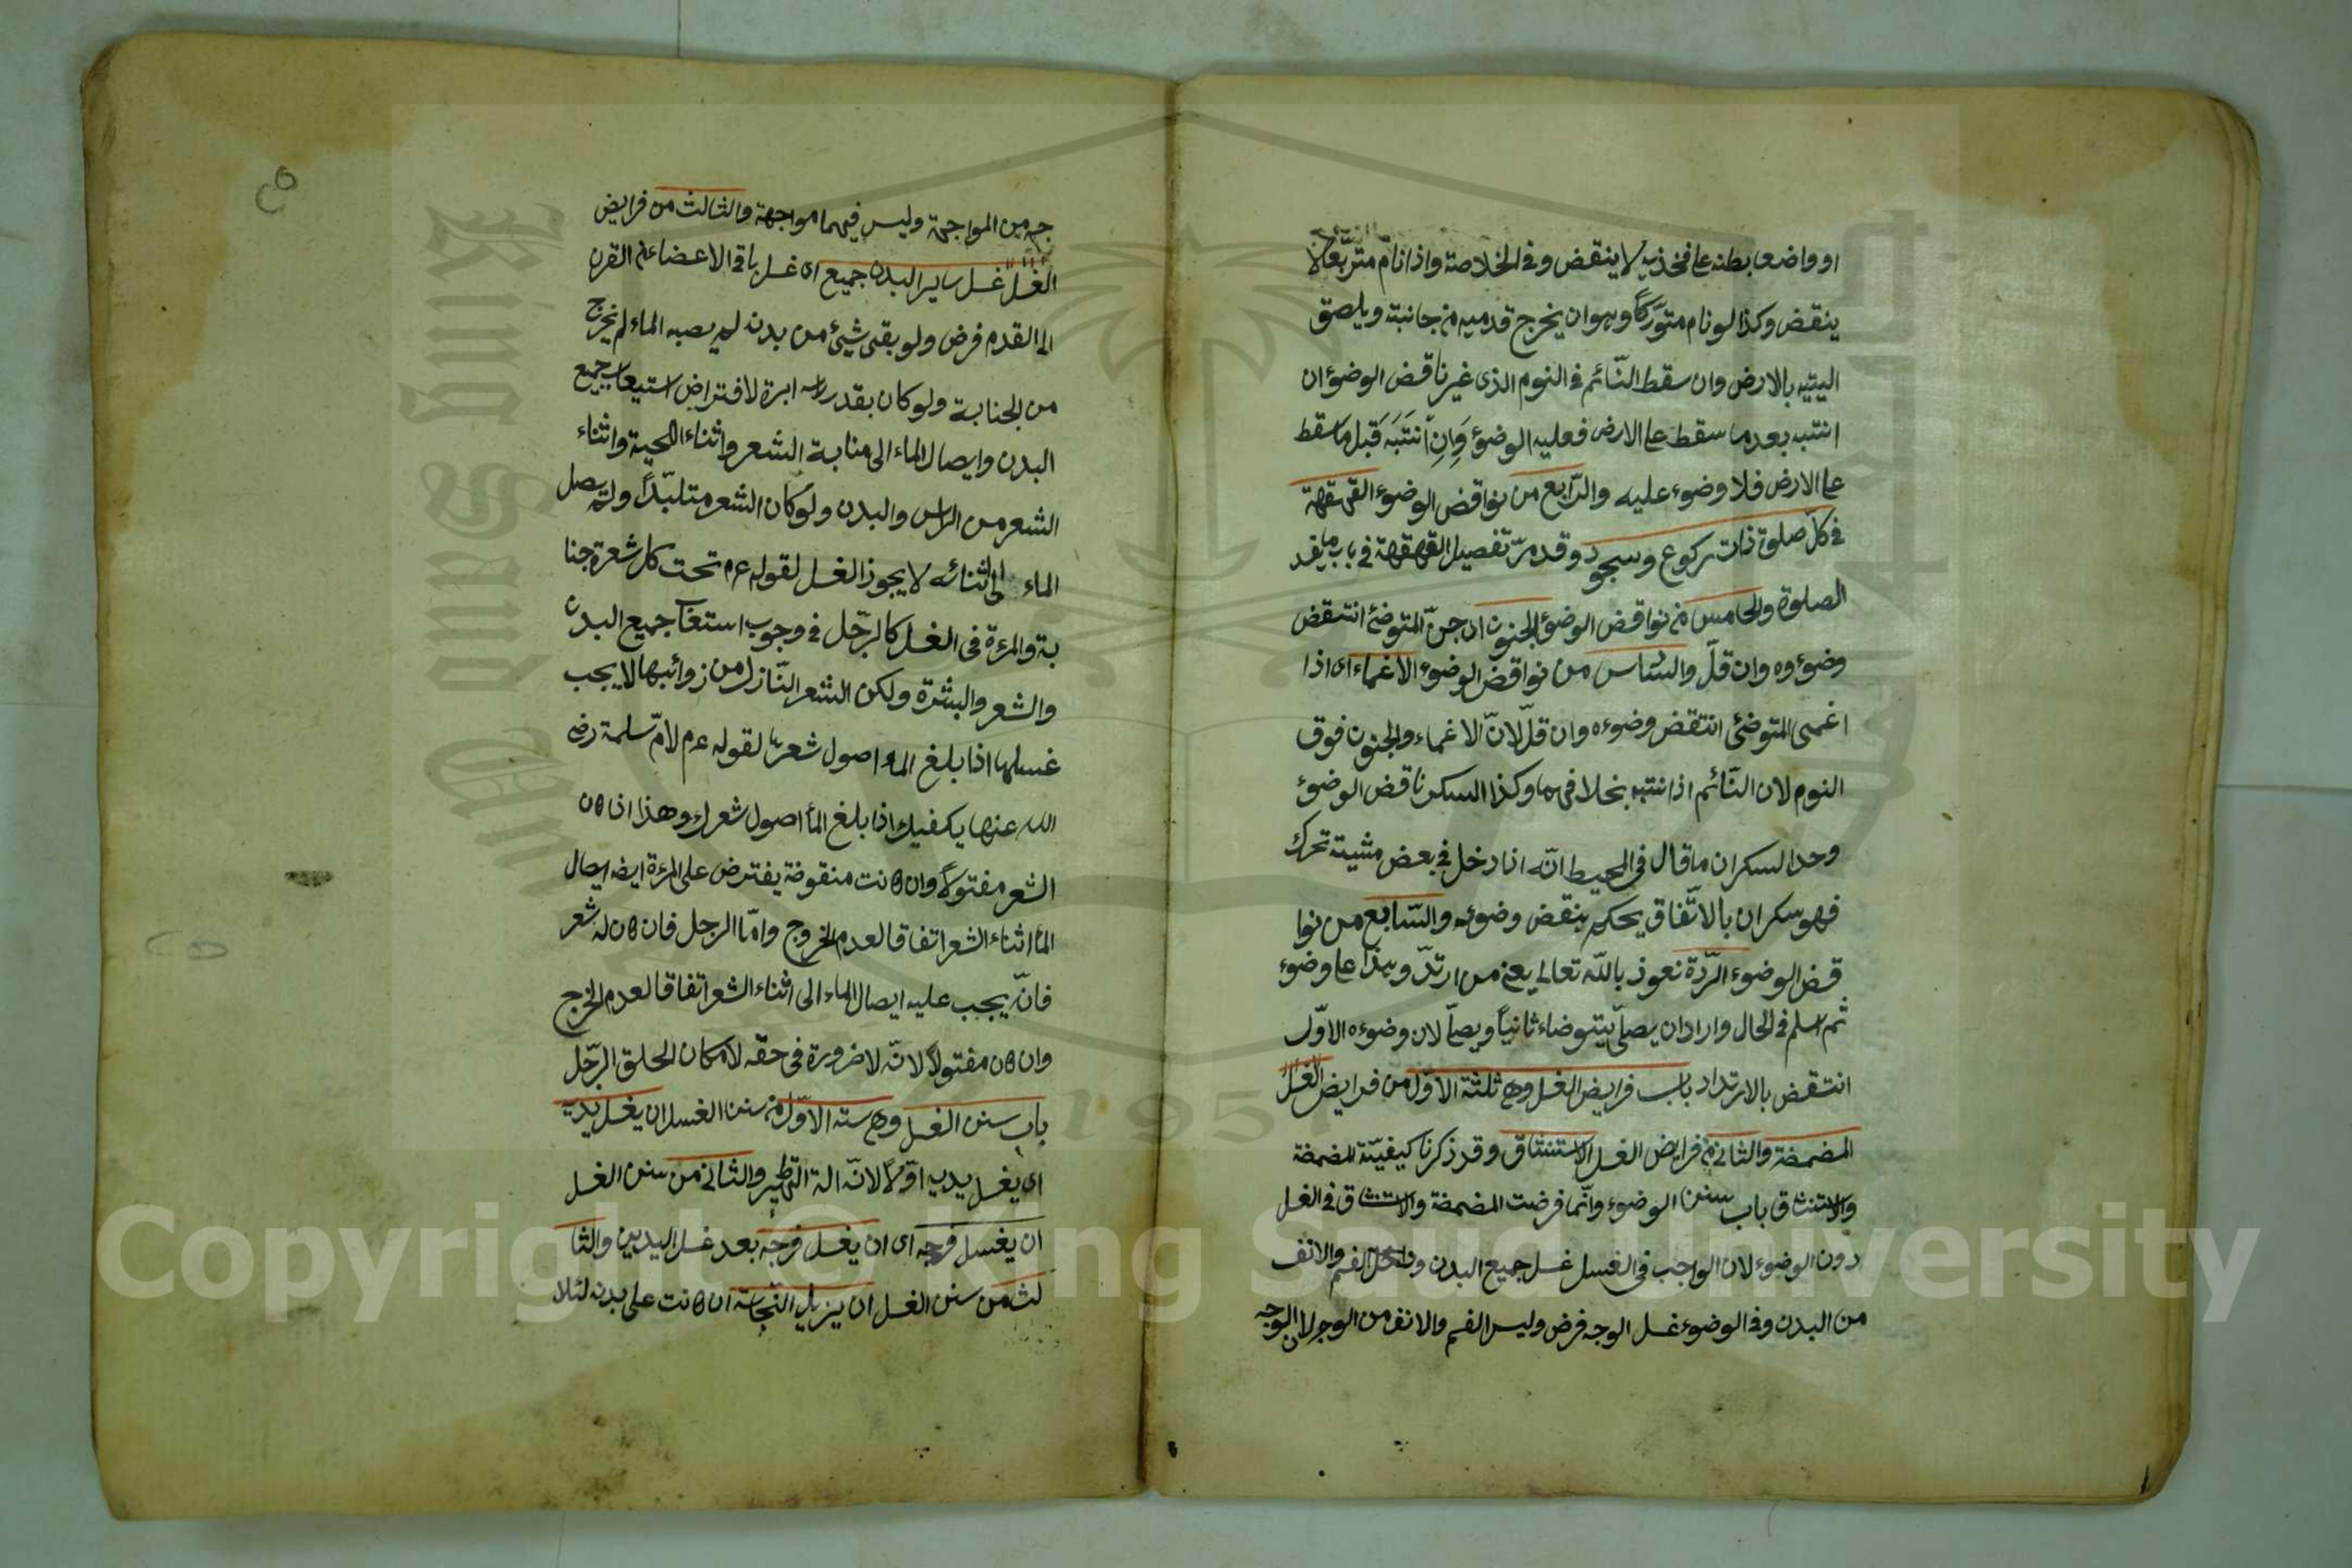 او واضعا بطنه عا فخذيه لا ينقض وفى الخلاصة واذا نام متربّعا لا
ينقض وكذا لو نام متورّكًا وهو ان يخرج قدميه من جانبه ويلصق
اليتيه بالارض وان سقط النّائم فى النوم الذى غير ناقض الوضوٴ ان
انتبه بعد ما سقط عا الارض فعليه الوضوٴ وَاِنِ انْتَبَهَ قَبل ما سقط
عا الارض فلا وضوء عليه والرّابع من نواقض الوضوء القهقهة
فى كلّ صلوة ذات ركوع وسجود وقد مرّ تفصيل القهقهة فى باب ما يفسد
الصلوة والخامس من نواقض الوضوٴ الجنون ان جنّ المتوضئ انتقض
وضوءوه وان قلّ والسّاس من نواقض الوضوء الاغماء اى اذا
اغمى المتوضئ انتقض وضوءه وان قلّ لانّ الاغماء والجنون فوق
النوم لان النّائم اذا نتبه بخلا فهما وكذا السكر ناقض الوضوٴ
وحد السكران ما قال فى المحيط انّه اذا دخل فى بعض مشيته تحرك
فهو سكران بالاتّفاق يحكم بنقض وضوئه والسّابع من نوا
قض الوضوء الرّدة نعوذ باللّه تعالى يعنى من ارتدّ وهذا عا وضوء
ثم اسلم فى الحال واراد ان يصلّى يتوضاء ثانياً ويصلّى لان وضوءه الاوّل
انتقض بالارتداد باب فرايض الغسل وهى ثلثة الاوّل من فرايض الغسل
المضمضة والثانى من فرايض الغسل الاستنشاق وقد ذكرنا كيفيّة المضمضة
والاستنشاق باب سنن الوضوء وانّما فرضت المضمضة والاستنشاق فى الغسل
دون الوضوء لان الواجب فى الغسل غسل جميع البدن وداخل الفم والانف
من البدن وفى الوضوء غسل الوجه فرض وليس الفم والانف من الوجه لان الوجه
جه من المواجهة وليس فيهما مواجهة والثالث من فرايض
الغسل غسل ساير البدن جميع اى غسل باقى الاعضاء من القرن
الى القدم فرض ولو بقى شيئ من بدنه لم يصبه الماء لم يخرج
من الجنابة ولو كان بقدر راس ابرة لافتراض استيعاب جميع
البدن وايصال الماء الى منابة الشعر واثناء اللحية واثناء
الشعر من الراس والبدن ولو كان الشعر متلبّدًا ولم يصل
الماء الى اثنائه لا يجوز الغسل لقوله عم تحت كل شعرة جنا
بة والمرءة فى الغسل كالرجّل فى وجوب استعاب جميع البدن
والشعر والبشرة ولكن الشعر النّازل من زوائبها لا يجب
غسلها اذا بلغ الماء اصول شعرها لقوله عم لامّ سلمة رضى
الله عنها يكفيك اذا بلغ المأ اصول شعرك وهذا اذا كان
الشعر مفتولاً وان كانت منقوضة يفترض على المرءة ايضا ايصال
المأ اثناء الشعر اتفاقا لعدم الخروج وامّا الرجل فان كان له شعر
فانّه يجب عليه ايصال الماء الى اثناء الشعر اتفاقا لعدم الخرج
وان كان مفتولاً لانّه لا ضرورة فى حقّه لامكان الحلق الرجّل
باب سنن الغسل وهى ستة الاوّل من سنن الغسل ان يغسل يديه
اى يغسل يديه اوّلاً لانّه الة التطهير والثانى من سنن الغسل
ان يغسل فرجه اى ان يغسل فرجه بعد غسل اليدين والثا
لث من سنن الغسل ان يزيل النجّاسة ان كانت على بدنه لئلا
Copyright © King Saud University
King Saud Univ
1957